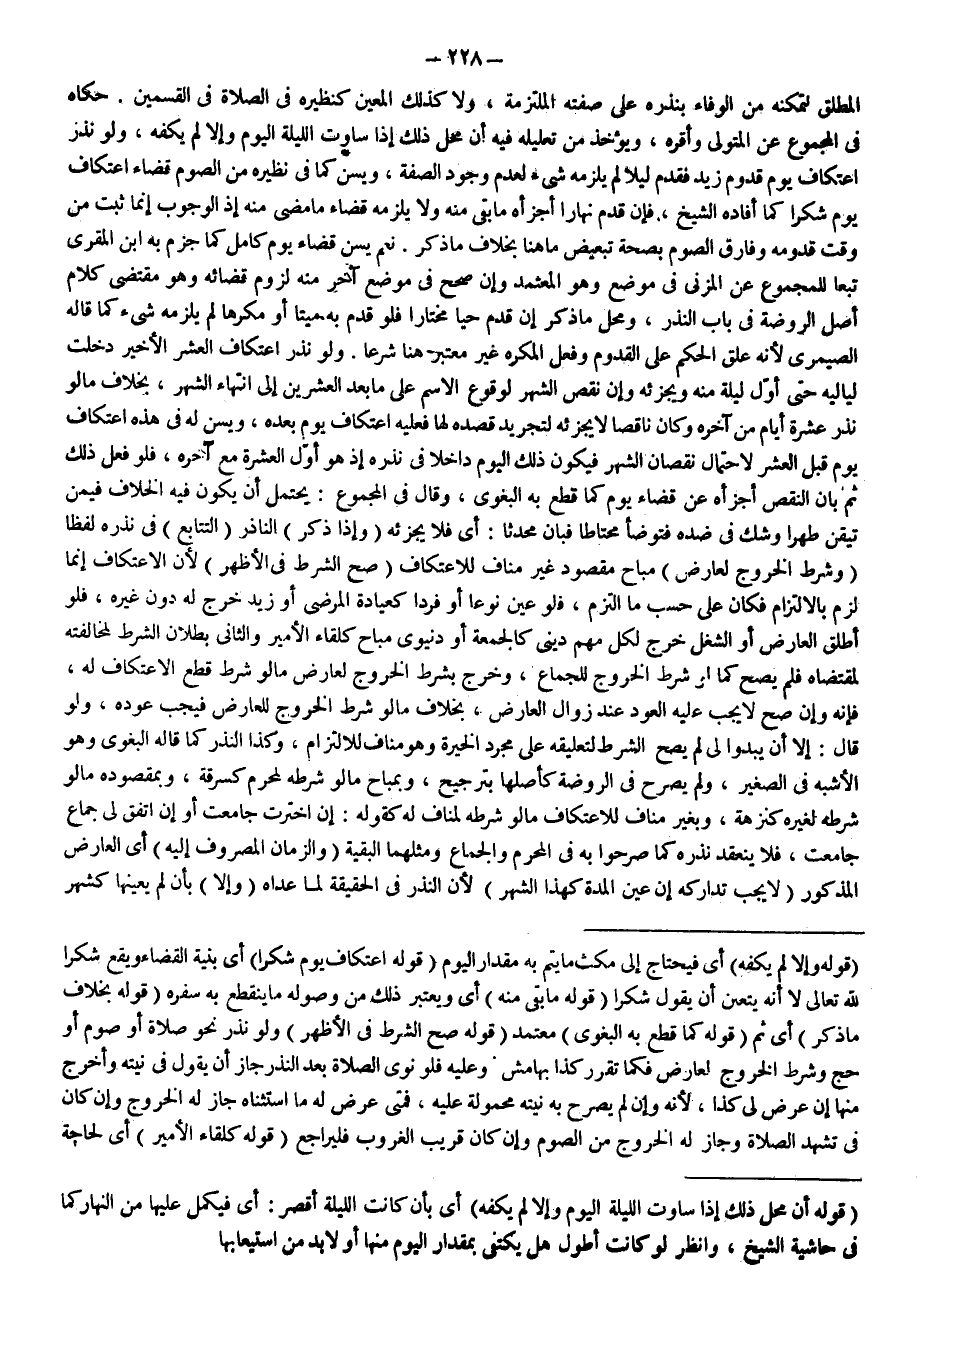 – ٢٢٨ –
المطلق لتمكنه من الوفاء بنذره على صفته الملتزمة ، ولا كذلك المعين كنظيره فى الصلاة فى القسمين . حكاه
فى المجموع عن المتولى وأقره ، ويؤخذ من تعليله فيه أن محل ذلك إذا ساوت الليلة اليوم وإلا لم يكفه ، ولو نذر
اعتكاف يوم قدوم زيد فقدم ليلا لم يلزمه شىء لعدم وجود الصفة ، ويسن كما فى نظيره من الصوم قضاء اعتكاف
يوم شكرا كما أفاده الشيخ ، فإن قدم نهارا أجزأه مابقى منه ولا يلزمه قضاء مامضى منه إذ الوجوب إنما ثبت من
وقت قدومه وفارق الصوم بصحة تبعيض ماهنا بخلاف ماذكر . نعم يسن قضاء يوم كامل كما جزم به ابن المقرى
تبعا للمجموع عن المزنى فى موضع وهو المعتمد وإن صحح فى موضع آخر منه لزوم قضائه وهو مقتضى كلام
أصل الروضة فى باب النذر ، ومحل ماذكر إن قدم حيا مختارا فلو قدم به ميتا أو مكرها لم يلزمه شىء كما قاله
الصيمرى لأنه علق الحكم على القدوم وفعل المكره غير معتبر هنا شرعا . ولو نذر اعتكاف العشر الأخير دخلت
لياليه حتى أوّل ليلة منه ويجزئه وإن نقص الشهر لوقوع الاسم على مابعد العشرين إلى انتهاء الشهر ، بخلاف مالو
نذر عشرة أيام من آخره وكان ناقصا لايجزئه لتجريد قصده لها فعليه اعتكاف يوم بعده ، ويسن له فى هذه اعتكاف
يوم قبل العشر لاحتمال نقصان الشهر فيكون ذلك اليوم داخلا فى نذره إذ هو أوّل العشرة مع آخره ، فلو فعل ذلك
ثم بان النقص أجزأه عن قضاء يوم كما قطع به البغوى ، وقال فى المجموع : يحتمل أن يكون فيه الخلاف فيمن
تيقن طهرا وشك فى ضده فتوضأ محتاطا فبان محدثا : أى فلا يجزئه ( وإذا ذكر ) الناذر ( التتابع ) فى نذره لفظا
( وشرط الخروج لعارض ) مباح مقصود غير مناف للاعتكاف ( صح الشرط فى الأظهر ) لأن الاعتكاف إنما
لزم بالالتزام فكان على حسب ما التزم ، فلو عين نوعا أو فردا كعيادة المرضى أو زيد خرج له دون غيره ، فلو
أطلق العارض أو الشغل خرج لكل مهم دينى كالجمعة أو دنيوى مباح كلقاء الأمير والثانى بطلان الشرط لمخالفته
لمقتضاه فلم يصح كما لو شرط الخروج للجماع ، وخرج بشرط الخروج لعارض مالو شرط قطع الاعتكاف له ،
فإنه وإن صح لايجب عليه العود عند زوال العارض ، بخلاف مالو شرط الخروج للعارض فيجب عوده ، ولو
قال : إلا أن يبدوا لى لم يصح الشرط لتعليقه على مجرد الخيرة وهو مناف للالتزام ، وكذا النذر كما قاله البغوى وهو
الأشبه فى الصغير ، ولم يصرح فى الروضة كأصلها بترجيح ، وبمباح مالو شرطه لمحرم كسرقة ، وبمقصوده مالو
شرطه لغيره كنزهة ، وبغير مناف للاعتكاف مالو شرطه لمناف له كقوله : إن اخترت جامعت أو إن اتفق لى جماع
جامعت ، فلا ينعقد نذره كما صرحوا به فى المحرم والجماع ومثلهما البقية ( والزمان المصروف إليه ) أى العارض
المذكور ( لايجب تداركه إن عين المدة كهذا الشهر ) لأن النذر فى الحقيقة لما عداه ( وإلا ) بأن لم يعينها كشهر
( قوله وإلا لم يكفه ) أى فيحتاج إلى مكث مايتم به مقدار اليوم ( قوله اعتكاف يوم شكرا ) أى بنية القضاء ويقع شكرا
لله تعالى لا أنه يتعين أن يقول شكرا ( قوله مابقى منه ) أى ويعتبر ذلك من وصوله ماينقطع به سفره ( قوله بخلاف
ماذكر ) أى ثم ( قوله كما قطع به البغوى ) معتمد ( قوله صح الشرط فى الأظهر ) ولو نذر نحو صلاة أو صوم أو
حج وشرط الخروج لعارض فكما تقرر كذا بهامش وعليه فلو نوى الصلاة بعد النذر جاز أن يقول فى نيته وأخرج
منها إن عرض لى كذا ، لأنه وإن لم يصرح به نيته محمولة عليه ، فمتى عرض له ما استثناه جاز له الخروج وإن كان
فى تشهد الصلاة وجاز له الخروج من الصوم وإن كان قريب الغروب فليراجع ( قوله كلقاء الأمير ) أى لحاجة
( قوله أن محل ذلك إذا ساوت الليلة اليوم وإلا لم يكفه ) أى بأن كانت الليلة أقصر : أى فيكمل عليها من النهار كما
فى حاشية الشيخ ، وانظر لو كانت أطول هل يكتفى بمقدار اليوم منها أو لابد من استيعابها